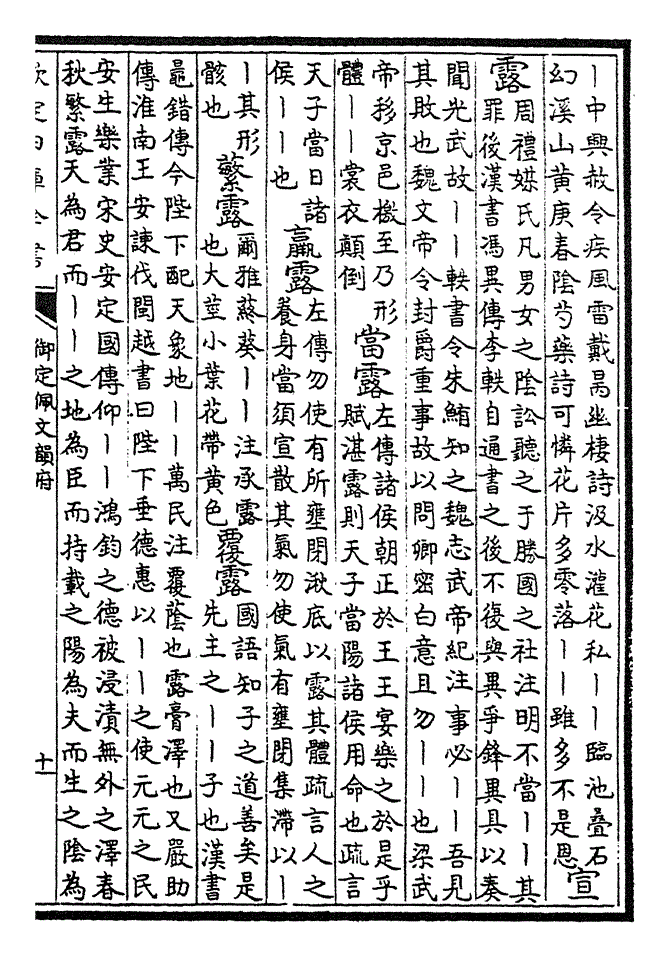 丨中興赦令疾風雷戴昺幽棲詩汲水灌花私丨丨臨池疊石
幻溪山黃庚春陰芍藥詩可憐花片多零落丨丨雖多不是恩宣
露周禮媒氏凡男女之陰訟聽之于勝國之社注明不當丨丨其
罪後漢書馮異傳李軼自通書之後不復與異爭鋒異具以奏
聞光武故丨丨軼書令朱鮪知之魏志武帝紀注事必丨丨吾見
其敗也魏文帝令封爵重事故以問卿密白意且勿丨丨也梁武
帝移京邑檄至乃形
體丨丨裳衣顛倒
當露左傳諸侯朝正於王王宴樂之於是乎
賦湛露則天子當陽諸侯用命也疏言
天子當日諸
侯丨丨也
羸露左傳勿使有所壅閉湫底以露其體疏言人之
養身當須宣散其氣勿使氣有壅閉集滯以丨
丨其形
骸也
蘩露爾雅蔠葵丨丨注承露
也大莖小葉花帶黃色
覆露國語知子之道善矣是
先主之丨丨子也漢書
鼂錯傳今陛下配天象地丨丨萬民注覆蔭也露膏澤也又嚴助
傳淮南王安諫伐閩越書曰陛下垂德惠以丨丨之使元元之民
安生樂業宋史安定國傳仰丨丨鴻鈞之德被浸漬無外之澤春
秋繁露天為君而丨丨之地為臣而持載之陽為夫而生之陰為
欽定四庫全書
御定佩文韻府
十一